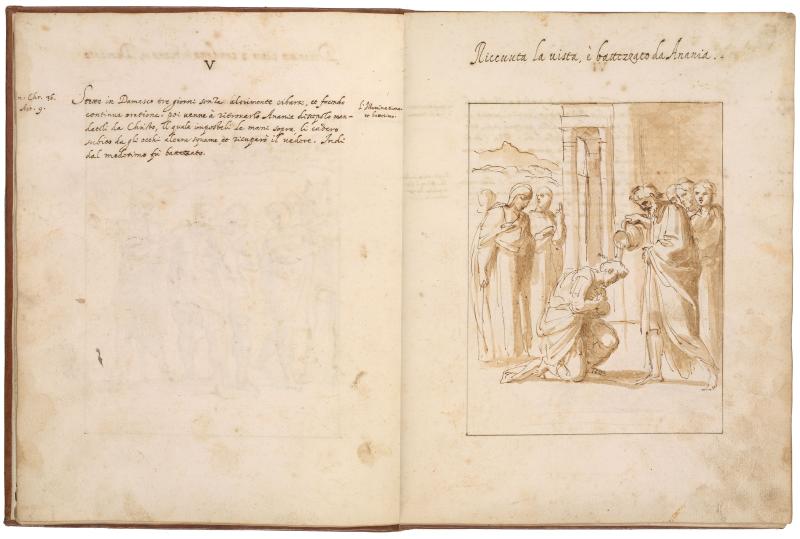 V
n. Chr. 36.
Act. 9.
Stette in Damasco tre giorni senza altrimente cibarsi, et facendo
continua oratione. poi venne à ritrovarlo Anania discepolo man-
datoli da Christo, il quale impostoli le mani sovra, li cadero
subito da gli occhi alcune squame et ricuperò il vedere. Indi
dal medesimo fù battezzato.
et battesimo.
Ricevuta la vista, è battezzato da Anania.